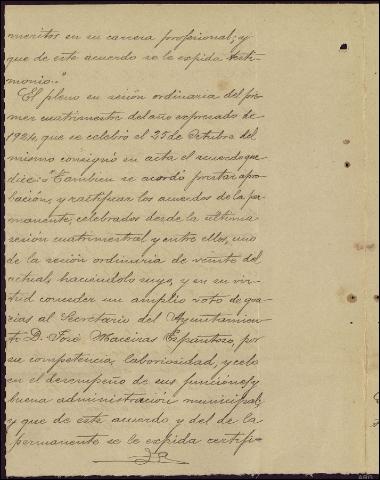 meritos en su carrera profesional; y
que de este acuerdo se le expida testi-
monio."
El pleno en sesión ordinaria del pri-
mer cuatrimestre del año expresado de
1924, que se celebró el 25 de Octubre del
mismo consignó en acta el acuerdo que
dice: "Tambien se acordó prestar apro-
bación, y ratificar los acuerdos de la per-
manente, celebrados desde la ultima
sesión cuatrimestral y entre ellos, uno
de la sesión ordinaria de veinte del
actual, haciendolo suyo, y en su vir-
tud conceder un amplio voto de gra-
cias al Secretario del Ayuntamien-
to D. José Maceiras Espantoso, por
su competencia, laboriosidad, y celo
en el desempeño de sus funciones y
buena administración municipal;
y que de este acuerdo y del de la
permanente se le expida certifi-